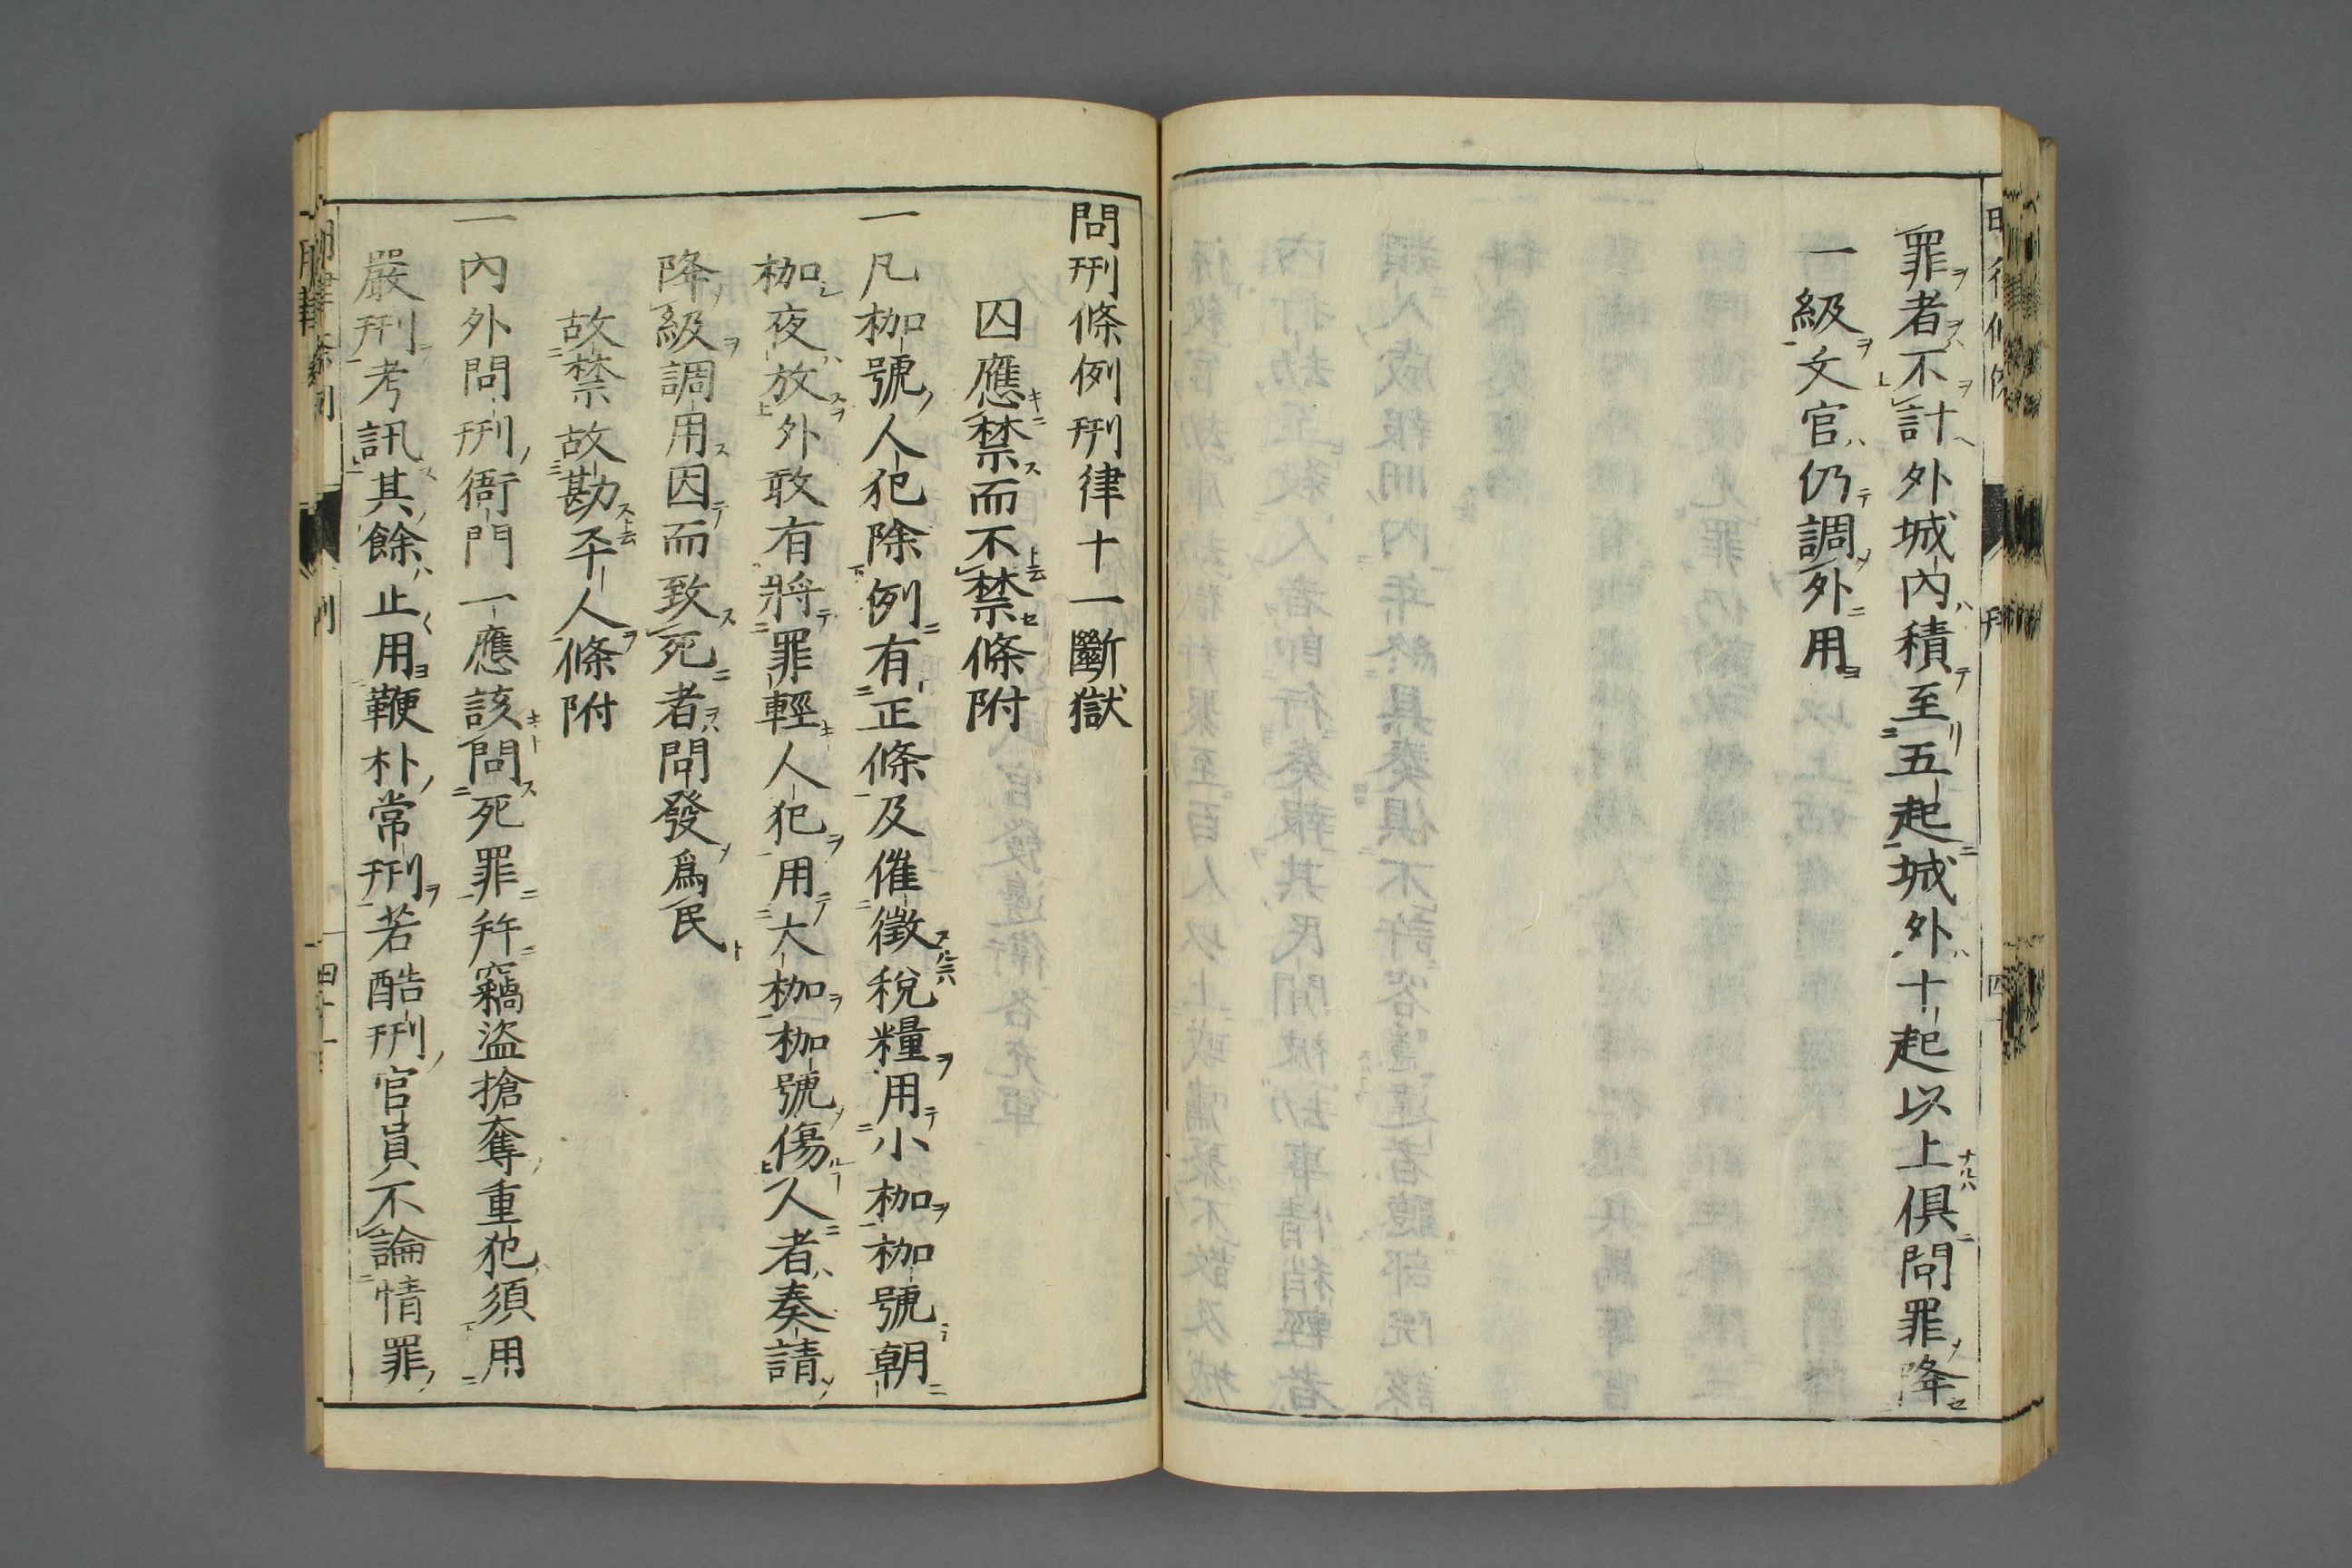 罪者不計外城內積至五起城外十起以上俱問罪降
一級文官仍調外用
問刑條例刑律十一斷獄
囚應禁而不禁條附
一凡枷號人犯除例有正條及催徵稅糧用小枷枷號朝
枷夜放外敢有將罪輕人犯用大枷枷號傷人者奏請
降級調用因而致死者問發爲民
故禁故勘平人條附
一內外問刑衙門一應該問死罪幷竊盜搶奪重犯須用
嚴刑考訊其餘止用鞭朴常刑若酷刑官員不論情罪